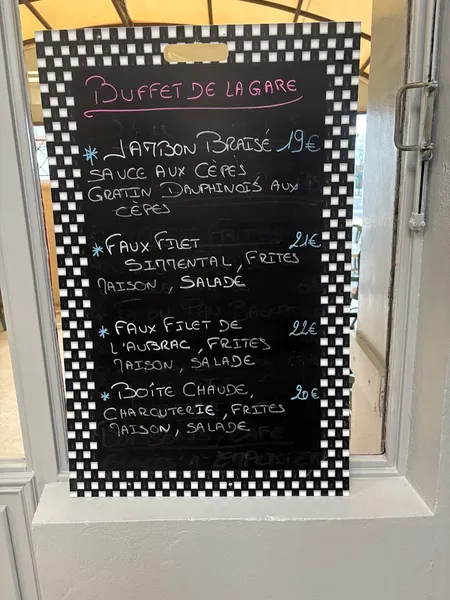 BUFFET DE LA GARE
* JAMBON BRAISÉ 19€
SAUCE AUX CÈPÈS
GRATIN DAUPHINOIS AUX
CÈPES
* FAUX FILET 21€
SIMMENTAL, FRITES
MAISON, SALADE
* FAUX FILET DE 22€
L'AUBRAC, FRITES
MAISON, SALADE
* BOÎTE CHAUDE, 20€
CHARCUTERIE, FRITES
MAISON, SALADE